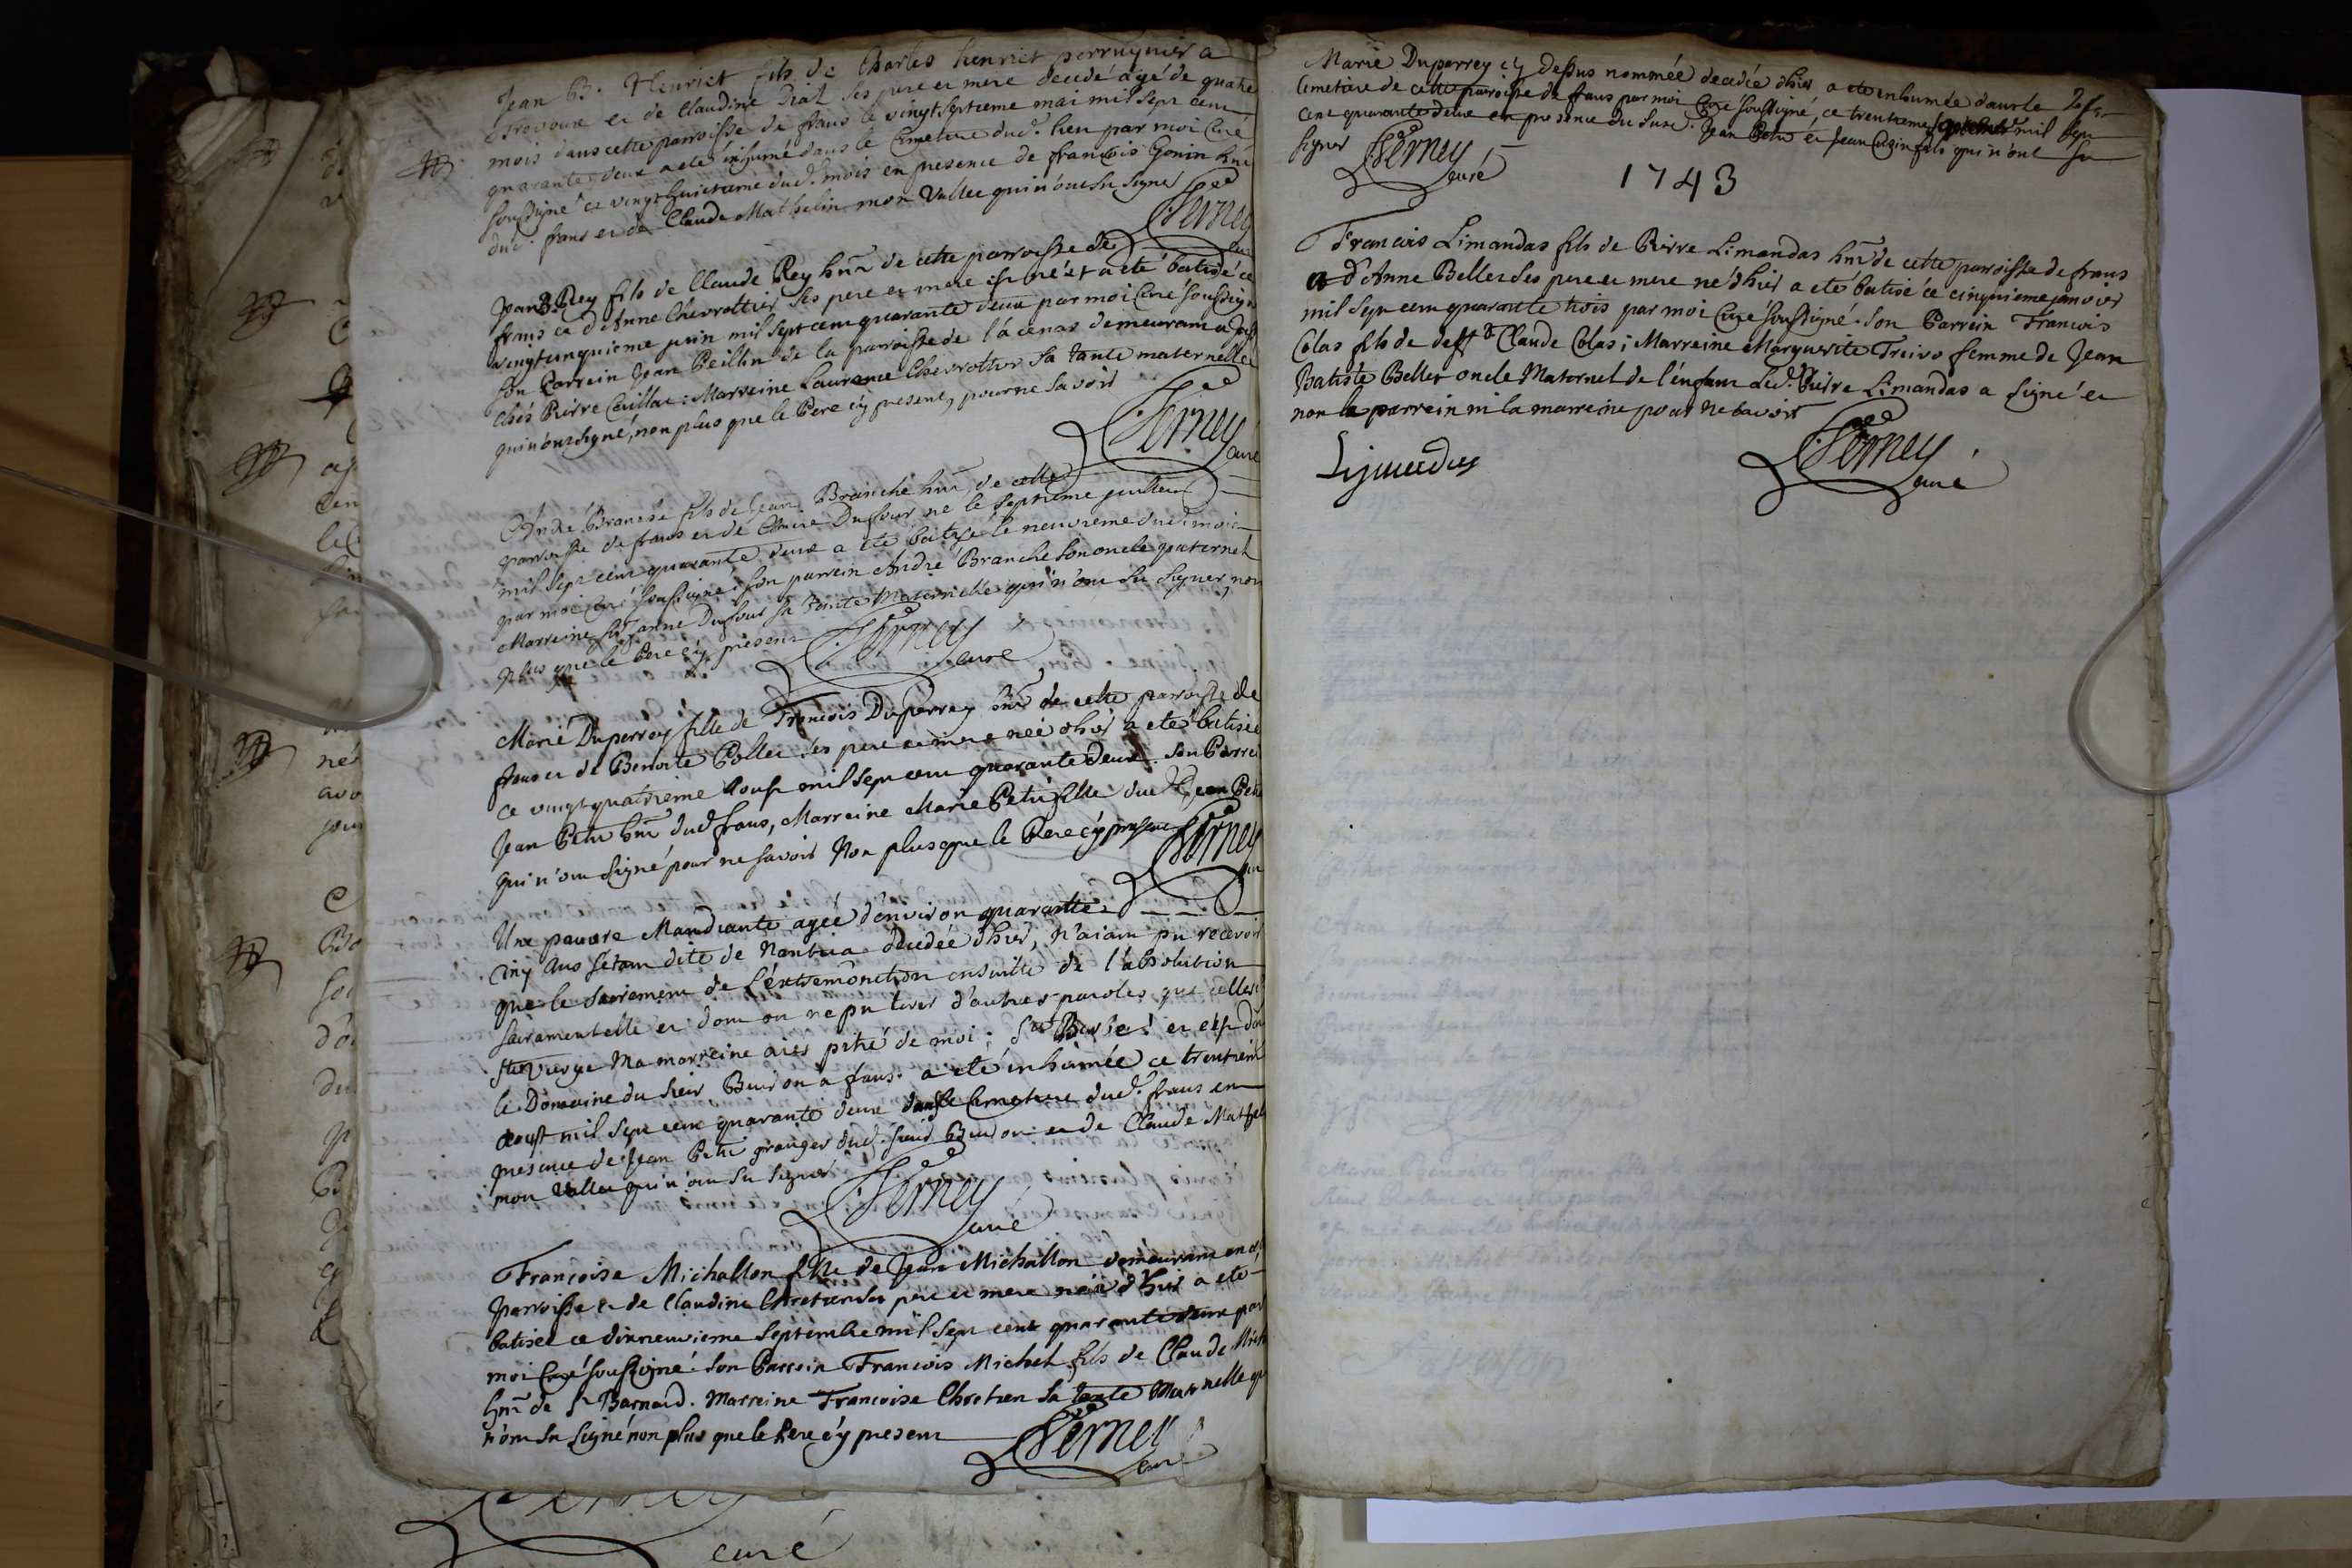 Jean B. Henriet fils de Charles henriet perruquier a
Trevoux et de Claudine Dial ses pere et mere decedé agé de quatre
mois dans cette parroisse de frans le vingt septieme mai mil sept cent
quarante deux a eté inhumé dans le Cimetiere dud. lieu par moi Curé
soussigné ce vingt huictieme dud. mois en presence de francois Gonin hnt
dud. frans et de Claude Mathelin mon Vallet qui n'ont su signer
Perney
curé
Jean B. Rey fils de Claude Rey hnt de cette parroisse de
frans et d'Anne Chevrottier ses pere et mere est né et a eté batisé ce
vingt cinquieme juin mil sept cent quarante deux par moi Curé soussigné
son Parrein Jean Peillin de la parroisse de lâcenas demeurant
chés Pierre Caillat: Marreine Laurence Chevrottier sa tante maternelle
qui n'ont signé, non plus que le Pere cy present, pour ne savoir
Perney
curé
André Branche fils de Jean Branche hnt de cette
parroisse de frans et de Claire Dufour né le septieme juillet
mil sept cent quarante deux a eté batisé le neuvieme dud. mois
par moi Curé soussigné: son parrein André Branche son oncle paternel
Marreine Dufour sa Tante Maternelle qui n'ont su signer, non
plus que le Pere cy present
Perney
curé
Marie Duperrey fille de Francois Duperrey hnt de cette parroisse de
frans et de Benoite Pollet ses pere et mere neé d'hier a eté batisée
ce vingt quatrieme Aoust mil sept cent quarante deux. son Parrein
Jean Petit hnt dud. frans, Marreine Marie Petit fille dud. Jean Petit
qui n'ont signé pour ne savoir Non plus que le Pere cy present
Perney
curé
Une pauvre Mandiante ageé d'environ quarante
cinq ans s'étant dite de Nantua decedée d'hier, n'aiant pu recevoir
que le sacrement de l'éxtremônction ensuitte de l'absolution
sacramentelle et dont on ne put tirer d'autres paroles que celles ci
Ste Vierge Ma marreine aiés pitié de moi; Ste Barbe! et c'est dans
le Domaine du sieur Buidon a frans. a eté inhumée ce trentieme
aoust mil sept cent quarante deux dans le Cimetiere dud. frans en
presence de Jean Petit granger dud. sieur Buidon et de Claude Mathelin
mon Vallet qui n'ont su signer
Perney
curé
Francoise Michallon fille de Jean Michallon demeurant en cette
parroisse et de Claudine Chretien ses pere et mere neé d'hier a eté
batisée ce dixneuvieme Septembre mil sept cent quarante deux par
moi Curé soussigné. son Parrein Francois Michel fils de Claude Michel
hnt de St Barnard. Marreine Francoise Chretien sa tante Maternelle qui
n'ont su signé non plus que le Pere cy present
Perney
curé
curé
Marie Duperrey cy dessus nommée decedée d'hier a eté enhumée dans le
Cimetiere de cette parroisse de frans par moi Curé soussigné, ce trentieme septembre mil sept
cent quarante deux en presence du susd. Jean Petit et Jean fils qui n'ont su
signer
Perney
curé
1743
Francois Limandas fils de Pierre Limandas hnt de cette parroisse de frans
et d'Anne Bellet ses pere et mere né d'hier a eté batisé ce cinquieme janvier
mil sept cent quarante trois par moi Curé soussigné. son Parrein Francois
Colas fils de defft Claude Colas; Marreine Marguerite Treivo femme de Jean
Batiste Bellet oncle Maternel de l'enfant Led. Pierre Limandas a signé et
non le parrein ni la marreine pour ne savoir
Limandas
Perney
curé